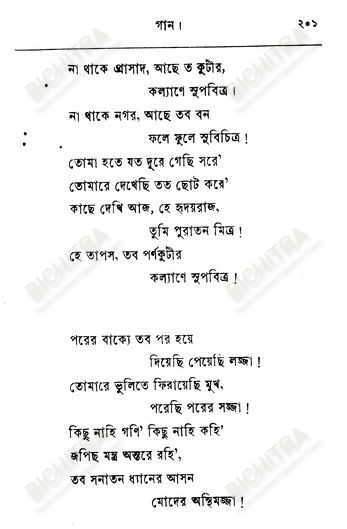 গান।
২০১
না থাকে প্রাসাদ, আছে ত কুটীর,
কল্যাণে সুপবিত্র।
না থাকে নগর, আছে তব বন
ফলে ফুলে সুবিচিত্র!
তোমা হতে যত দূরে গেছি সরে'
তোমারে দেখেছি তত ছোট করে'
কাছে দেখি আজ, হে হৃদয়রাজ,
তুমি পুরাতন মিত্র!
হে তাপস, তব পর্ণকুটীর
কল্যাণে সুপবিত্র!
পরের বাক্যে তব পর হয়ে
দিয়েছি পেয়েছি লজ্জা!
তোমারে ভুলিতে ফিরায়েছি মুখ,
পরেছি পরের সজ্জা!
কিছু নাহি গণি' কিছু নাহি কহি'
জপিছ মন্ত্র অন্তরে রহি',
তব সনাতন ধ্যানের আসন
মোদের অস্থিমজ্জা!
BICHITRA
BICHITRA
BICHITRA
BICHITRA
BICHITRA
BICHITRA